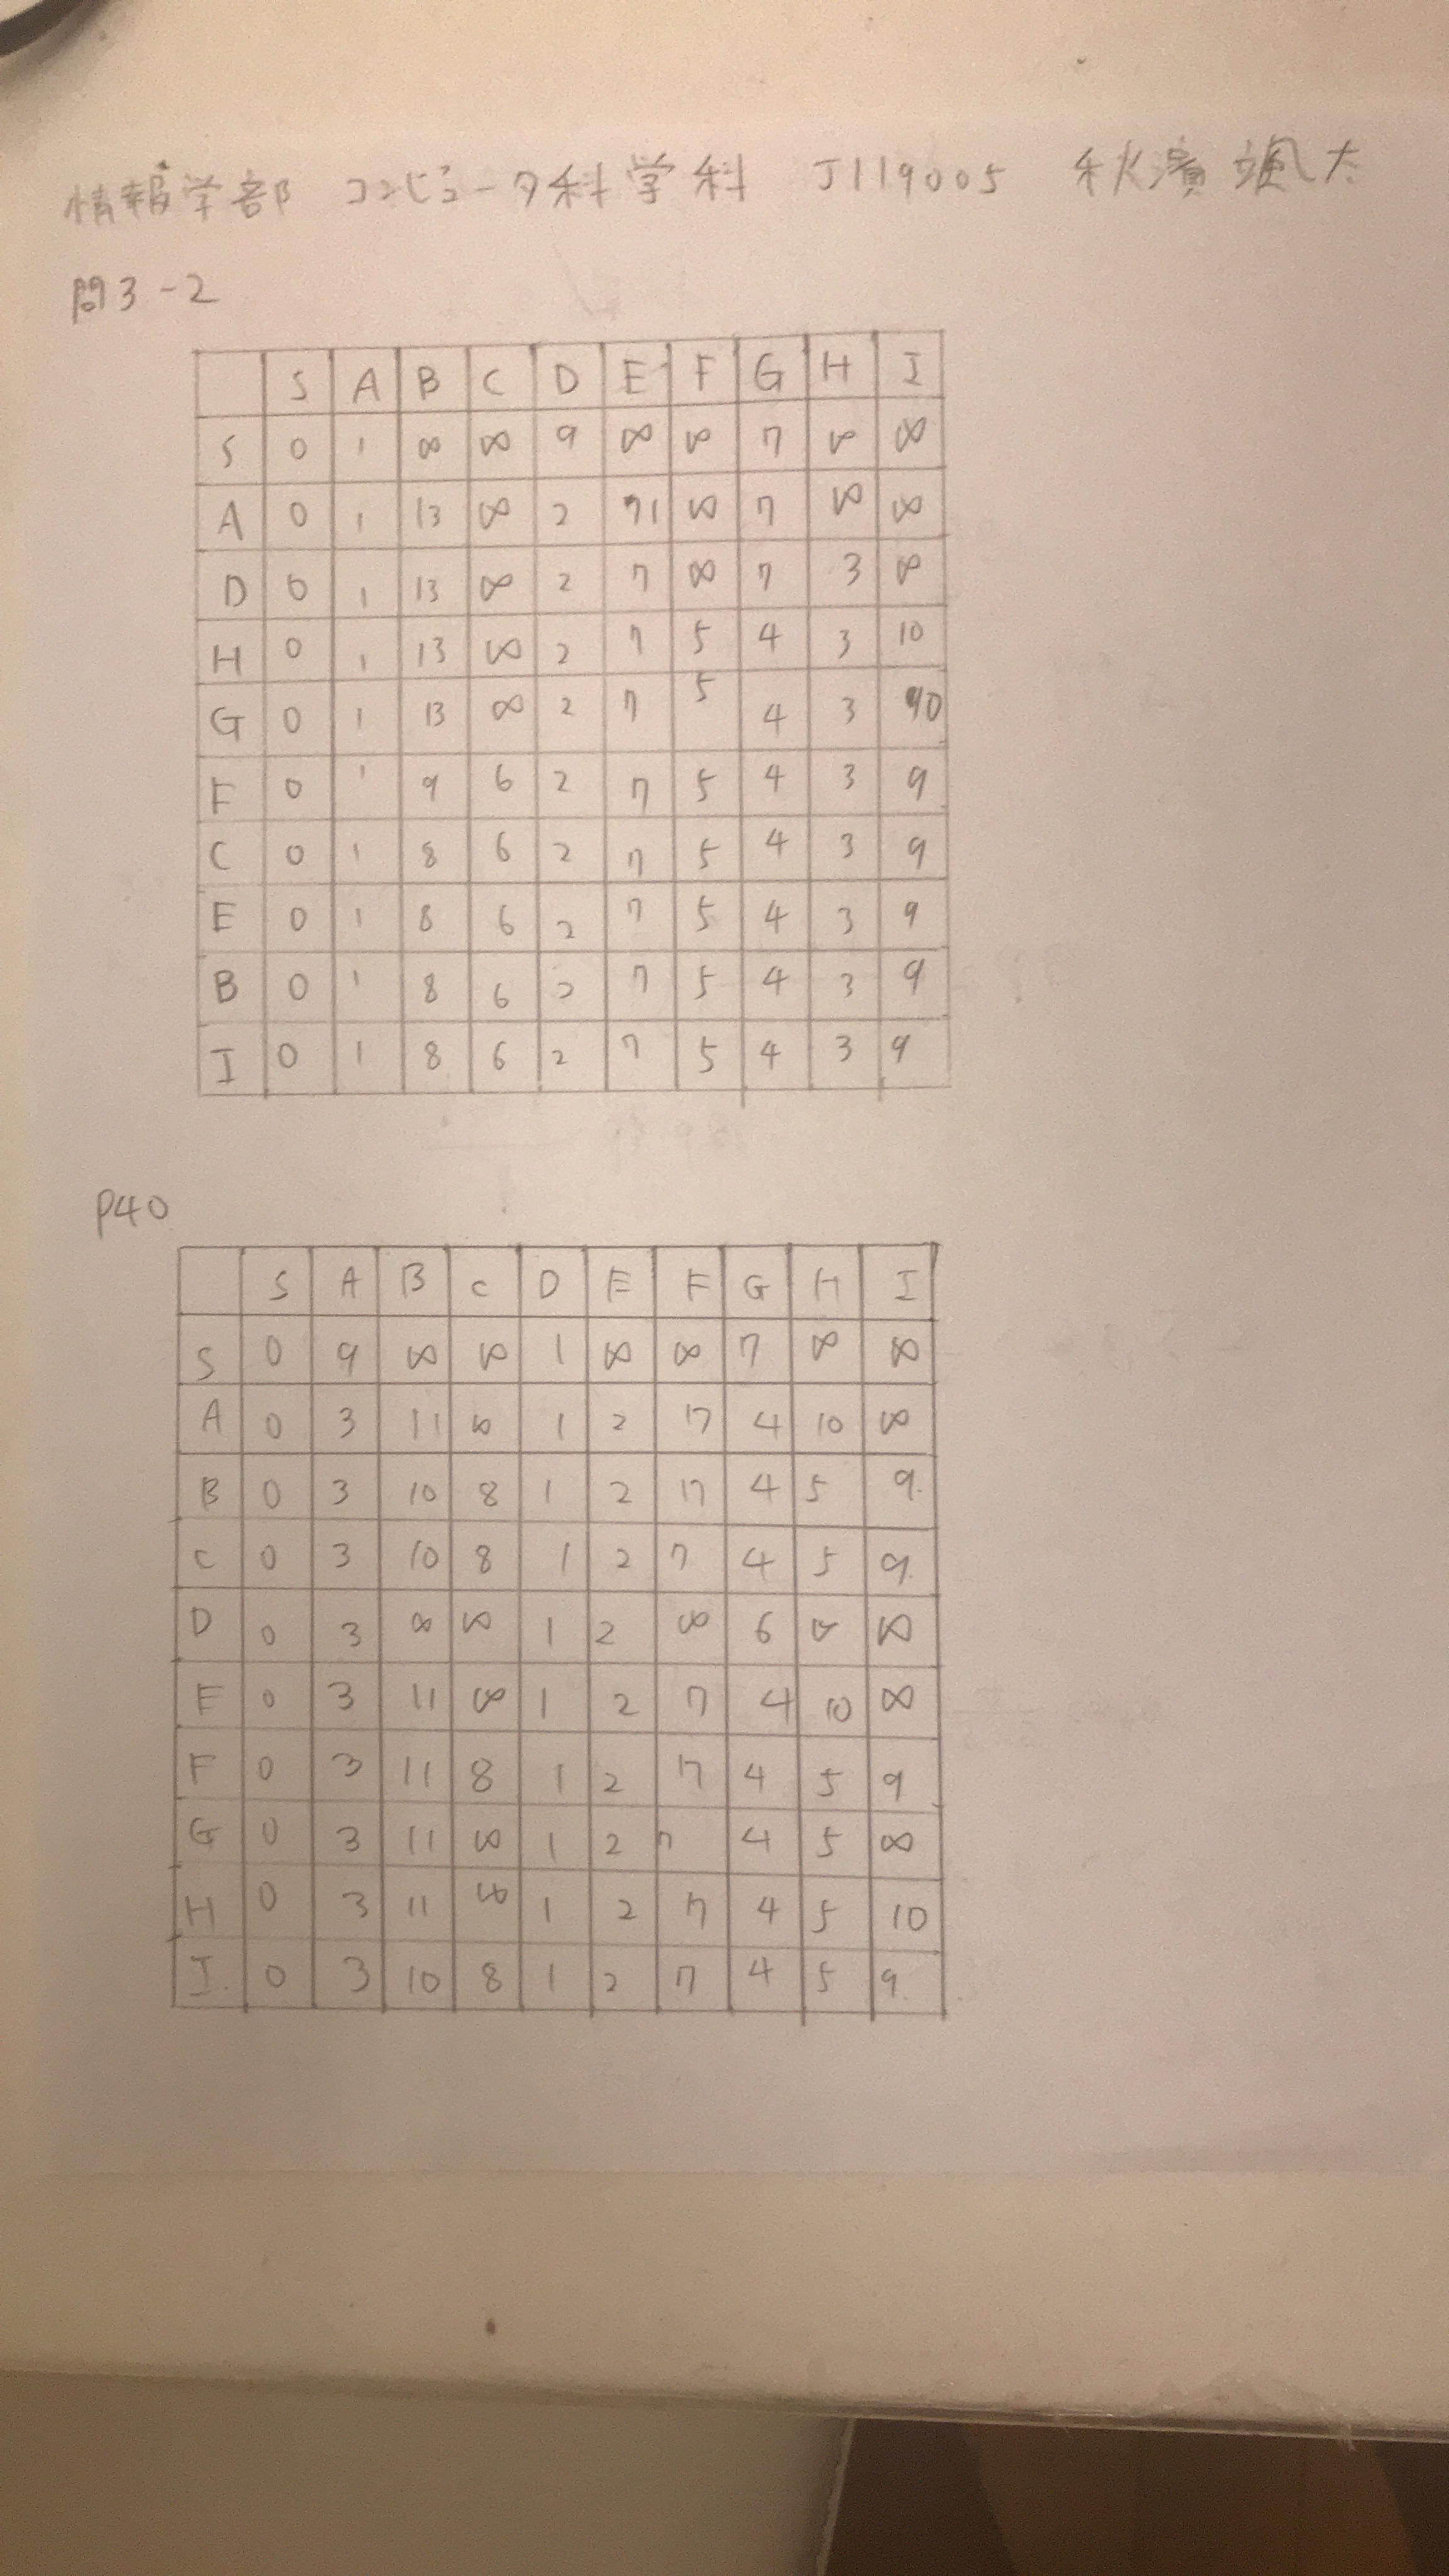 情報学部 コンピュータ科学科 J119005 秋濱 颯太
問3-2
S A B C D E F G H I
S 0 1 ∞ ∞ 9 ∞ ∞ 7 ∞ ∞
A 0 1 13 ∞ 2 ∞ 7 ∞ ∞
D 0 1 13 ∞ 2 7 ∞ 7 3 ∞
H 0 1 13 ∞ 2 7 5 4 3 10
G 0 1 13 ∞ 2 7 5 4 3 10
F 0 1 9 6 2 7 5 4 3 9
C 0 1 8 6 2 7 5 4 3 9
E 0 1 8 6 2 7 5 4 3 9
B 0 1 8 6 2 7 5 4 3 9
I 0 1 8 6 2 7 5 4 3 9
P40
S A B C D E F G H I
S 0 9 ∞ ∞ 1 ∞ ∞ 7 ∞ ∞
A 0 3 11 ∞ 1 2 7 4 10 ∞
B 0 3 10 8 1 2 7 4 5 9
C 0 3 10 8 1 2 7 4 5 9
D 0 3 ∞ ∞ 1 2 ∞ 6 ∞ ∞
E 0 3 11 ∞ 1 2 7 4 10 ∞
F 0 3 11 8 1 2 7 4 5 9
G 0 3 11 ∞ 1 2 7 4 5 ∞
H 0 3 11 ∞ 1 2 7 4 5 10
I 0 3 10 8 1 2 7 4 5 9